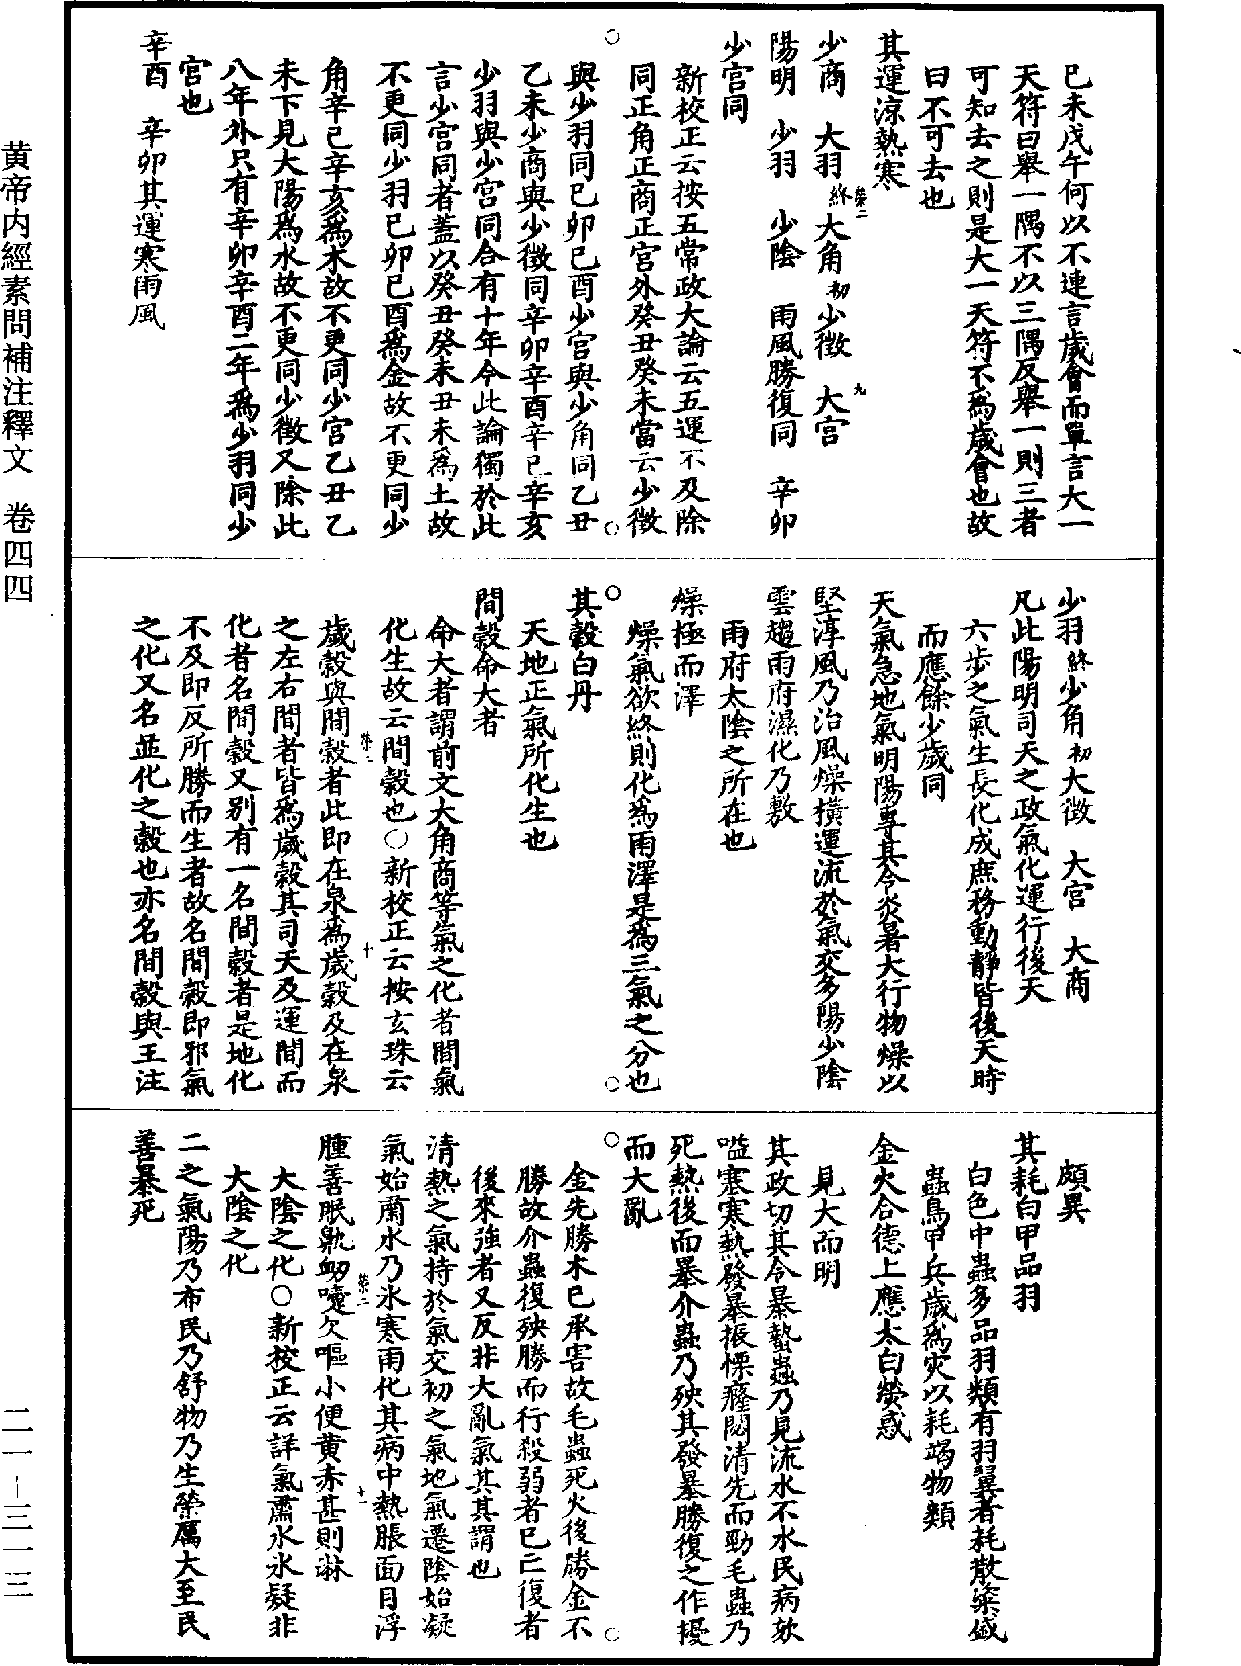 巳未戊午何以不連言歲會而單言大一
天符曰舉一隅不以三隅反舉一則三者
可知去之則是大一天符不爲歲會也故
曰不可去也
其運涼熱寒
少商　大羽終　大角初　少徵　大宮
陽明　少羽　少陰　雨風勝復同　辛卯
少宮同
新校正云按五常政大論云五運不及除
同正角正商正宮外癸丑癸未當云少徵
與少羽同巳卯巳酉少宮與少角同乙丑
乙未少商與少徵同辛卯辛酉辛巳辛亥
少羽與少宮同合有十年今此論獨於此
言少宮同者蓋以癸丑癸未丑未爲土故
不更同少羽巳卯巳酉爲金故不更同少
角辛巳辛亥爲木故不更同少宮乙丑乙
未下見大陽爲水故不更同少徵又除此
八年外只有辛卯辛酉二年爲少羽同少
宮也
辛酉　辛卯其運寒雨風
少羽終少角初大徵　大宮　大商
凡此陽明司天之政氣化運行後天
六步之氣生長化成庶務動靜皆後天時
而應餘少歲同
天氣急地氣明陽專其令炎暑大行物燥以
堅淳風乃治風燥橫運流於氣交多陽少陰
雲趨雨府濕化乃敷
雨府太陰之所在也
燥極而澤
燥氣欲終則化爲雨澤是爲三氣之分也
其穀白丹
天地正氣所化生也
間穀命大者
命大者謂前文大角商等氣之化者間氣
化生故云間穀也○新校正云按玄珠云
歲穀與間穀者此即在泉爲歲穀及在泉
之左右間者皆爲歲穀其司天及運間而
化者名間穀又別有一名間穀者是地化
不及即反所勝而生者故名間穀即邪氣
之化又名並化之穀也亦名間穀與王注
頗異
其耗白甲品羽
白色中蟲多品羽類有羽翼者耗散粢盛
蟲鳥甲兵歲爲灾以耗竭物類
金火合德上應太白熒惑
見大而明
其政切其令暴蟄蟲乃見流水不冰民病欬
嗌塞寒熱發暴振慄癃閟清先而勁毛蟲乃
死熱後而暴介蟲乃殃其發暴勝復之作擾
而大亂
金先勝木巳承害故毛蟲死火後勝金不
勝故介蟲復殃勝而行殺弱者巳亡復者
後來強者又反非大亂氣其其謂也
清熱之氣持於氣交初之氣地氣遷陰始凝
氣始肅水乃冰寒雨化其病中熱脹面目浮
腫善眠鼽衄嚏欠嘔小便黄赤甚則淋
大陰之化○新校正云詳氣肅水冰疑非
大陰之化
二之氣陽乃布民乃舒物乃生榮厲大至民
善暴死
黄帝内經素問補注釋文　卷四四
二一－三一三